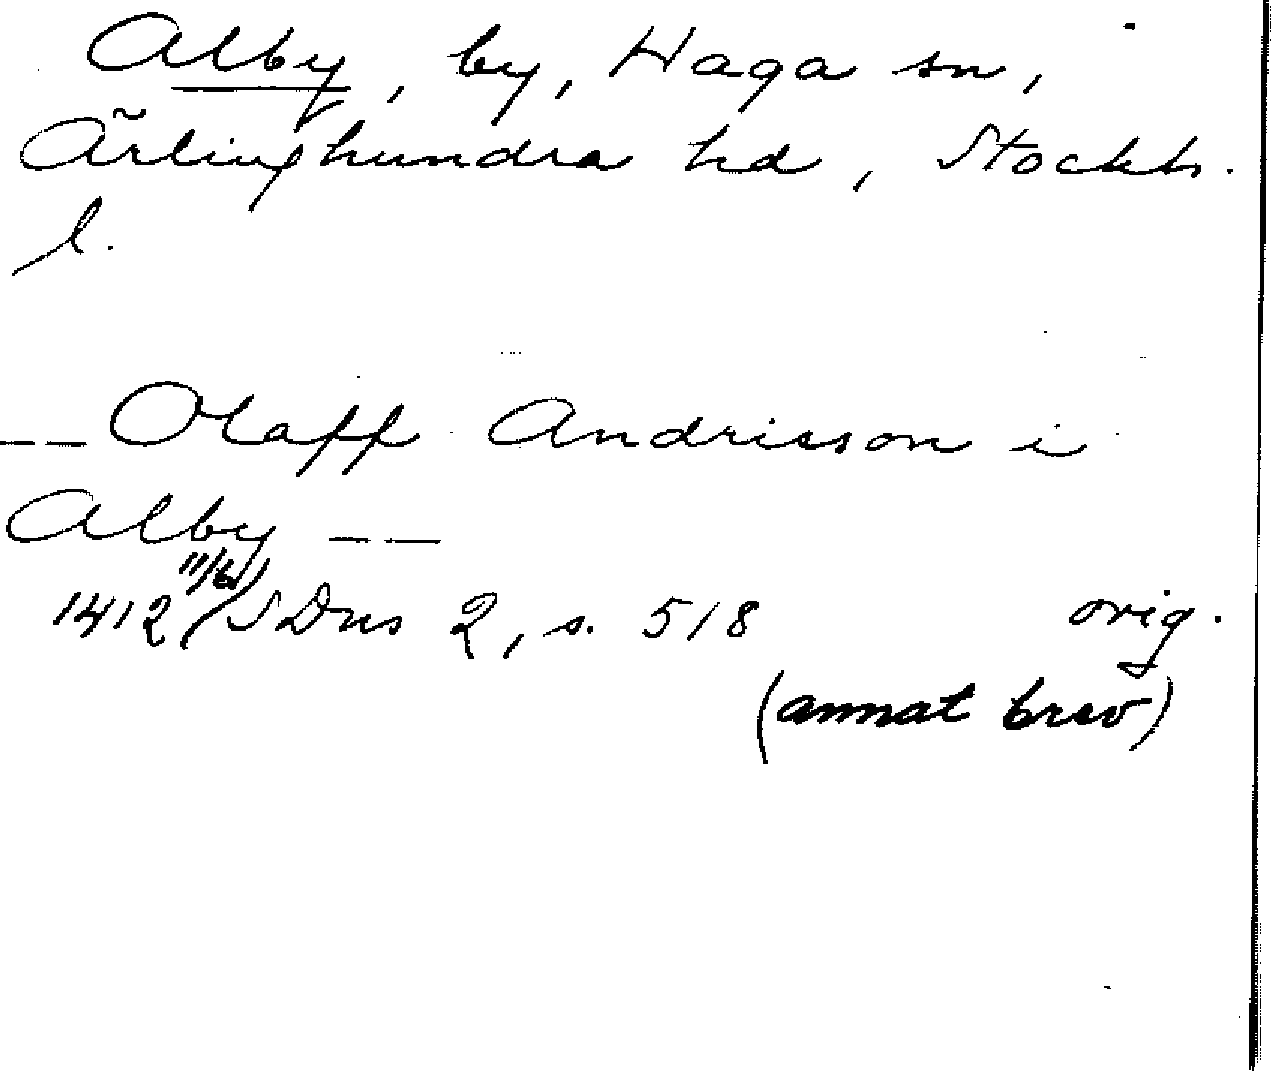 Alby, by, Haga sn,
Ärlinghundra hd, Stockh.
l.
-- Olaff Andrisson i
Alby --
1412 11/6 SDns 2, s. 518 orig.
(annat brev)